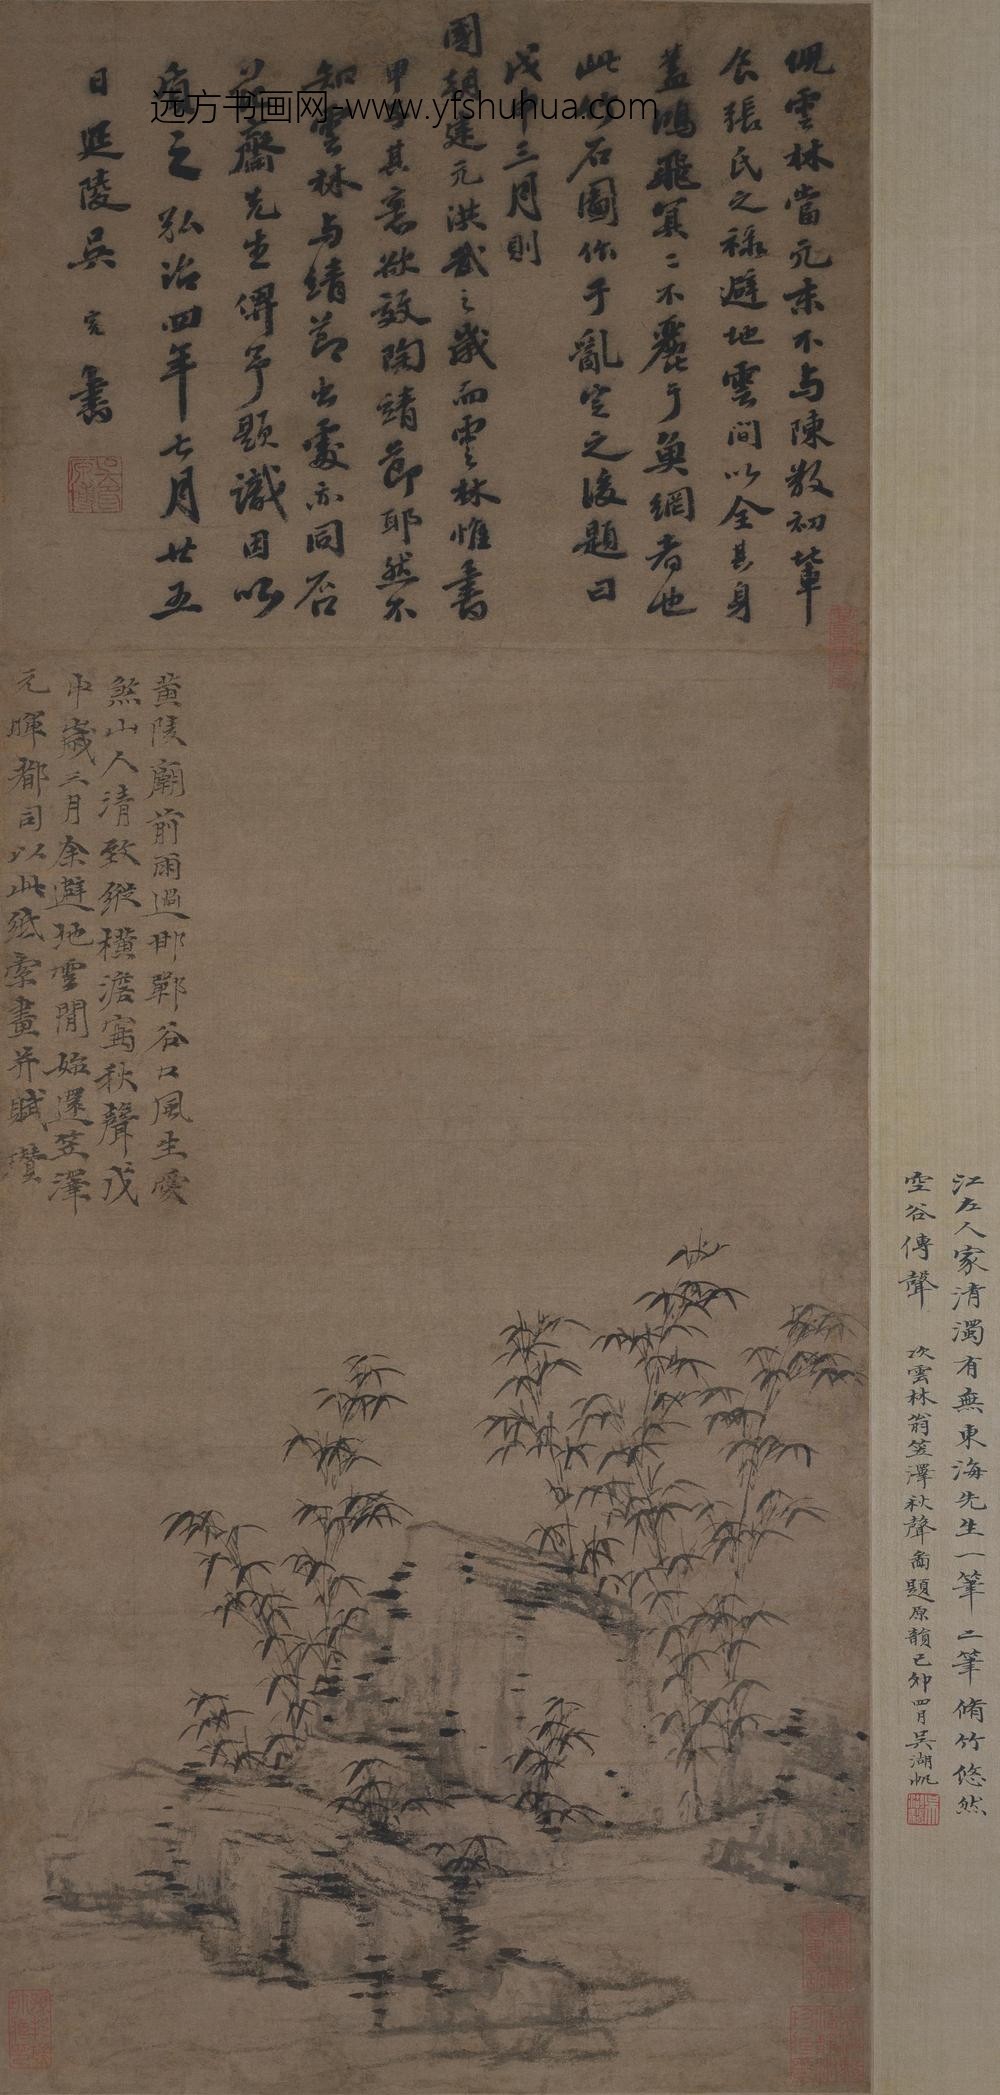 远方书画网-www.yfshuhua.com
倪雲林當元末不与陳敬初輩
食張氏之祿避地雲間以全其身
蓋鴻飛冥〻不麗于魚網者也
此竹石圖作于亂定之後題曰
戊申三月則
國朝建元洪武之歲而雲林惟書
甲子其意欲效陶靖節耶然不
知雲林与靖節出處亦同否
齋先生俾予題識因以
質之弘治四年七月廿五
日延陵吳寬書
黃陵廟前雨過邯鄲谷口風生愛
煞山人清致縱橫澹寫秋聲戊
申歲三月余避地雲間始還笠澤
元暉都司以此紙索畫并賦瓚
江左人家清濁有無東海先生一筆二筆脩竹悠然
空谷傳聲
次雲林翁笠澤秋聲啚題原韻己卯四月吳湖帆